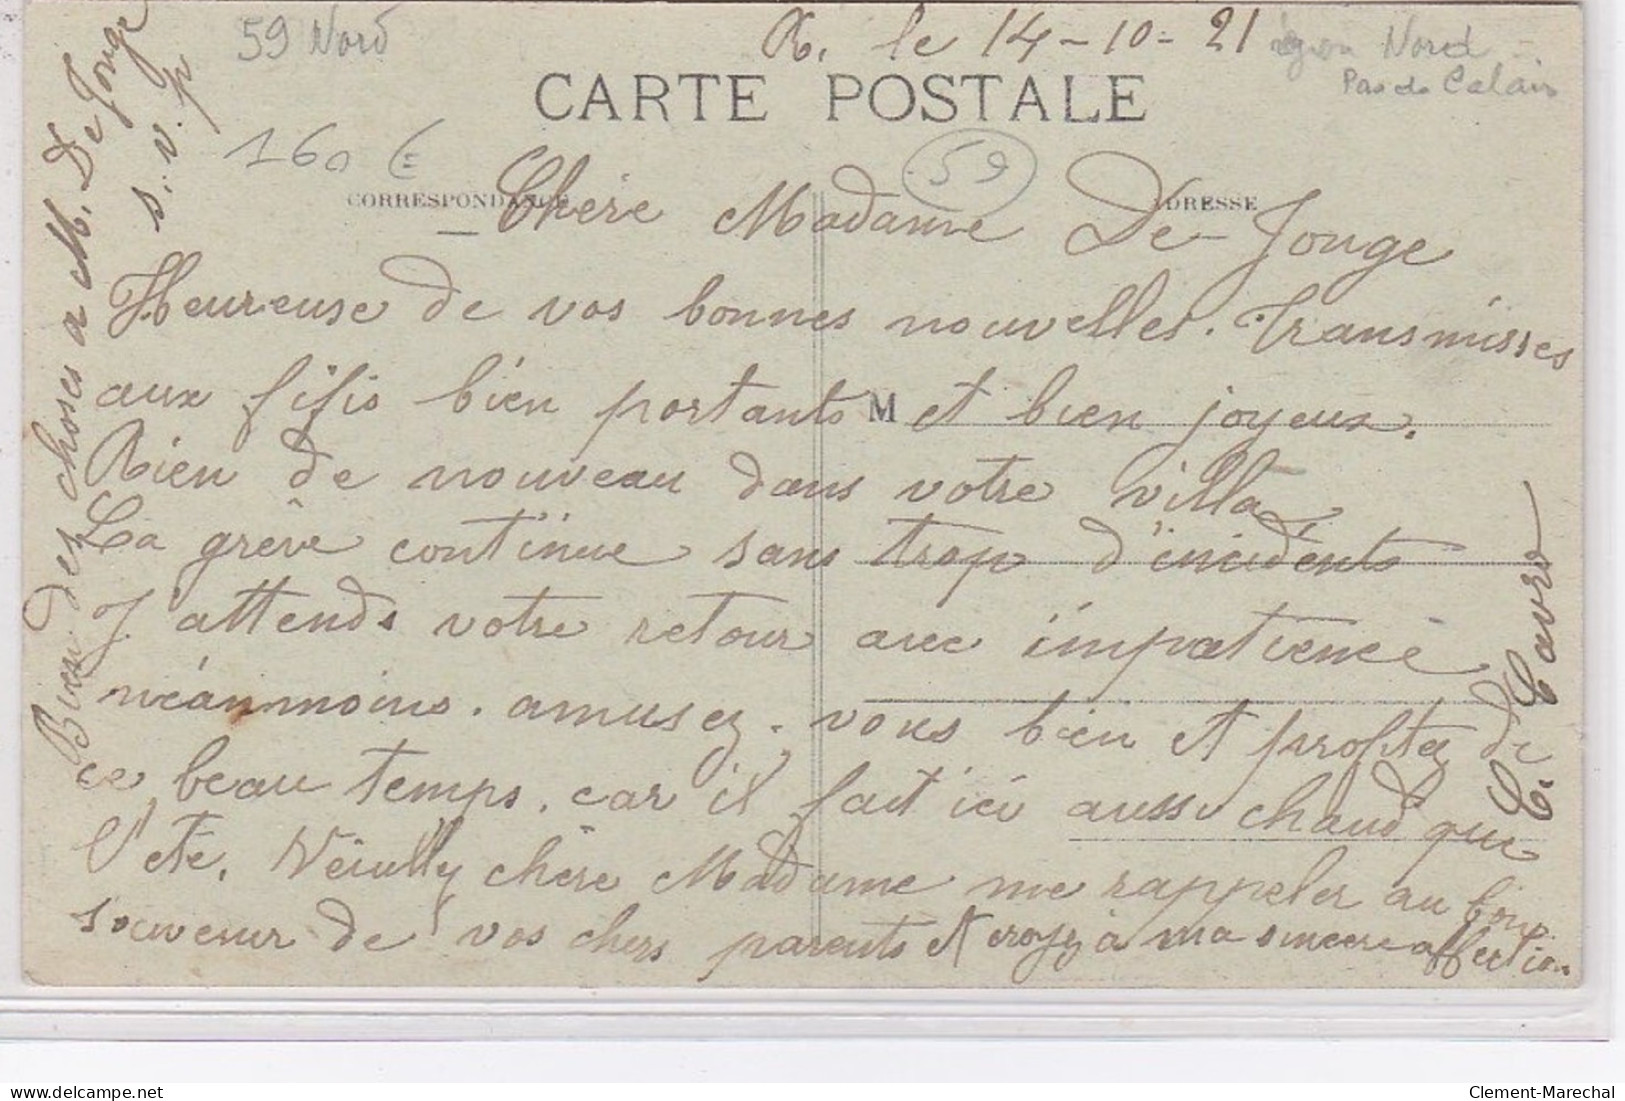 59 Nord
R. le 14-10-21
région Nord
Pas de Calais
CARTE POSTALE
160 €
59
CORRESPONDANCE
ADRESSE
Chère Madame De-Jonge
Heureuse de vos bonnes nouvelles. Transmisses
aux fifis bien portants et bien joyeux.
M
Rien de nouveau dans votre villa
La grève continue sans trop d'incidents
J'attends votre retour avec impatience
néanmoins. amusez-vous bien et profitez de
ce beau temps. car il fait ici aussi chaud que
l'été. Veuilly chère Madame me rappeler au bon
souvenir de vos chers parents et croyez à ma sincère affection.
E. Cavro
Bien des choses a M. De Jonge
s.v.p
Clement-Marechal
delcampe.net